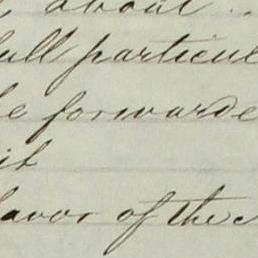 about
full particul
be forwarde
it
favor of the